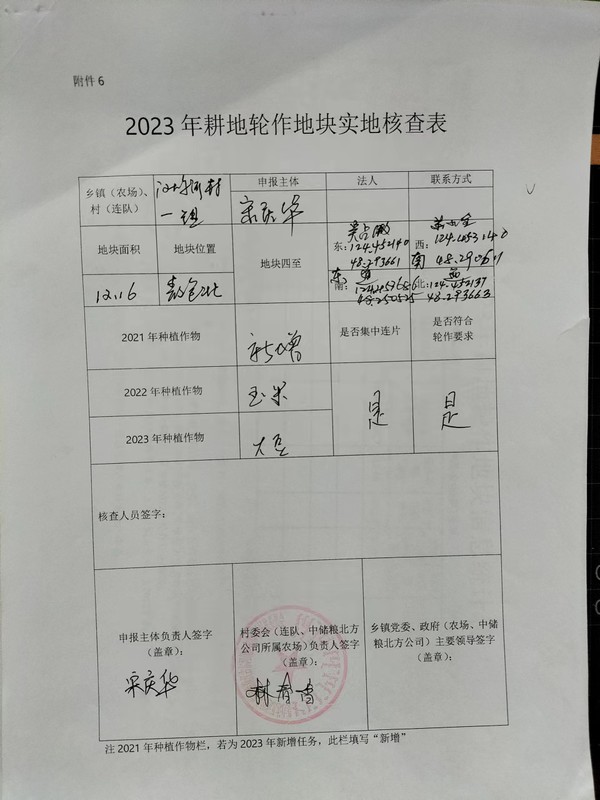 附件 6
2023 年耕地轮作地块实地核查表
乡镇（农场）、
村（连队）
一组
申报主体
宋庆华
法人
联系方式
地块面积
地块位置
地块四至
东：124.452140
48.293661
西：
12.16
南：
北：124.452137
48.293663
2021 年种植作物
新增
是否集中连片
是否符合
轮作要求
2022 年种植作物
玉米
是
是
2023 年种植作物
大豆
核查人员签字：
申报主体负责人签字
（盖章）：
宋庆华
村委会（连队、中储粮北方
公司所属农场）负责人签字
（盖章）：
乡镇党委、政府（农场、中储
粮北方公司）主要领导签字
（盖章）：
注 2021 年种植作物栏，若为 2023 年新增任务，此栏填写“新增”